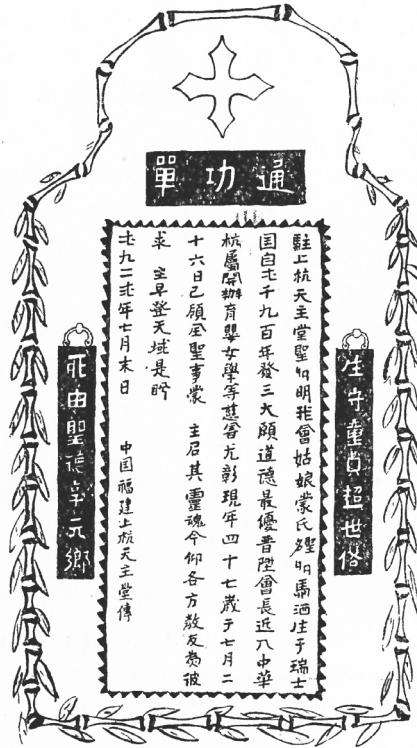 通功單
生守童貞超世俗
駐上杭天主堂聖多明我會姑娘蒙氏名聖多馬洒生于瑞士
国自弌千九百年發三大願道德最優晉陞會長近入中華
杭屬開辦育嬰女學等慈善尤彰現年四十七歲于七月二
十六日已領全聖事蒙 主召其靈魂今仰各方教友為彼
求 主早登天域是盼
弌九二弍年七月末日 中国福建上杭天主堂傳
死由聖德享元鄉